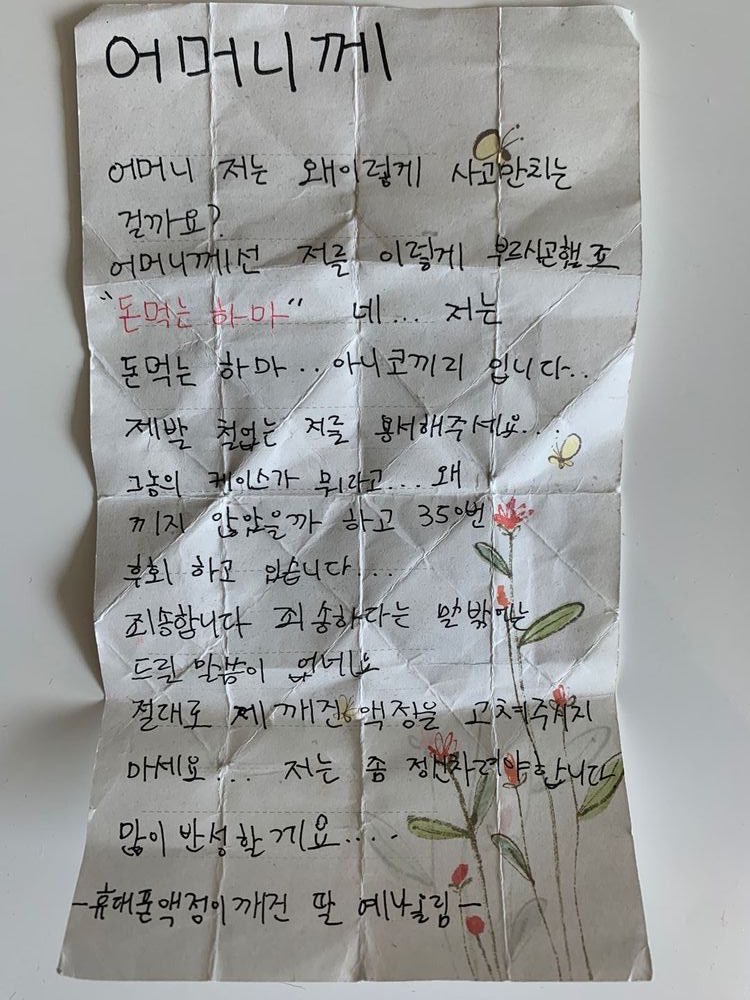 어머니께
어머니 저는 왜이렇게 사고만치는
걸까요?
어머니께선 저를 이렇게 부르시곤햄죠
"돈먹는 하마" 네... 저는
돈먹는 하마.. 아니코끼리 입니다..
제발 철없는 저를 용서해주세요...
그놈의 케이스가 뭐라고... 왜
끼지 않았을까 하고 350번
후회 하고 있습니다...
죄송합니다 죄송하다는 말밖에는
드릴 말씀이 없네요
절대로 제 깨진 액정을 고쳐주시지
마세요... 저는 좀 정신차려야합니다
많이 반성할게요....
-휴대폰액정이 깨진 딸 예나올림-